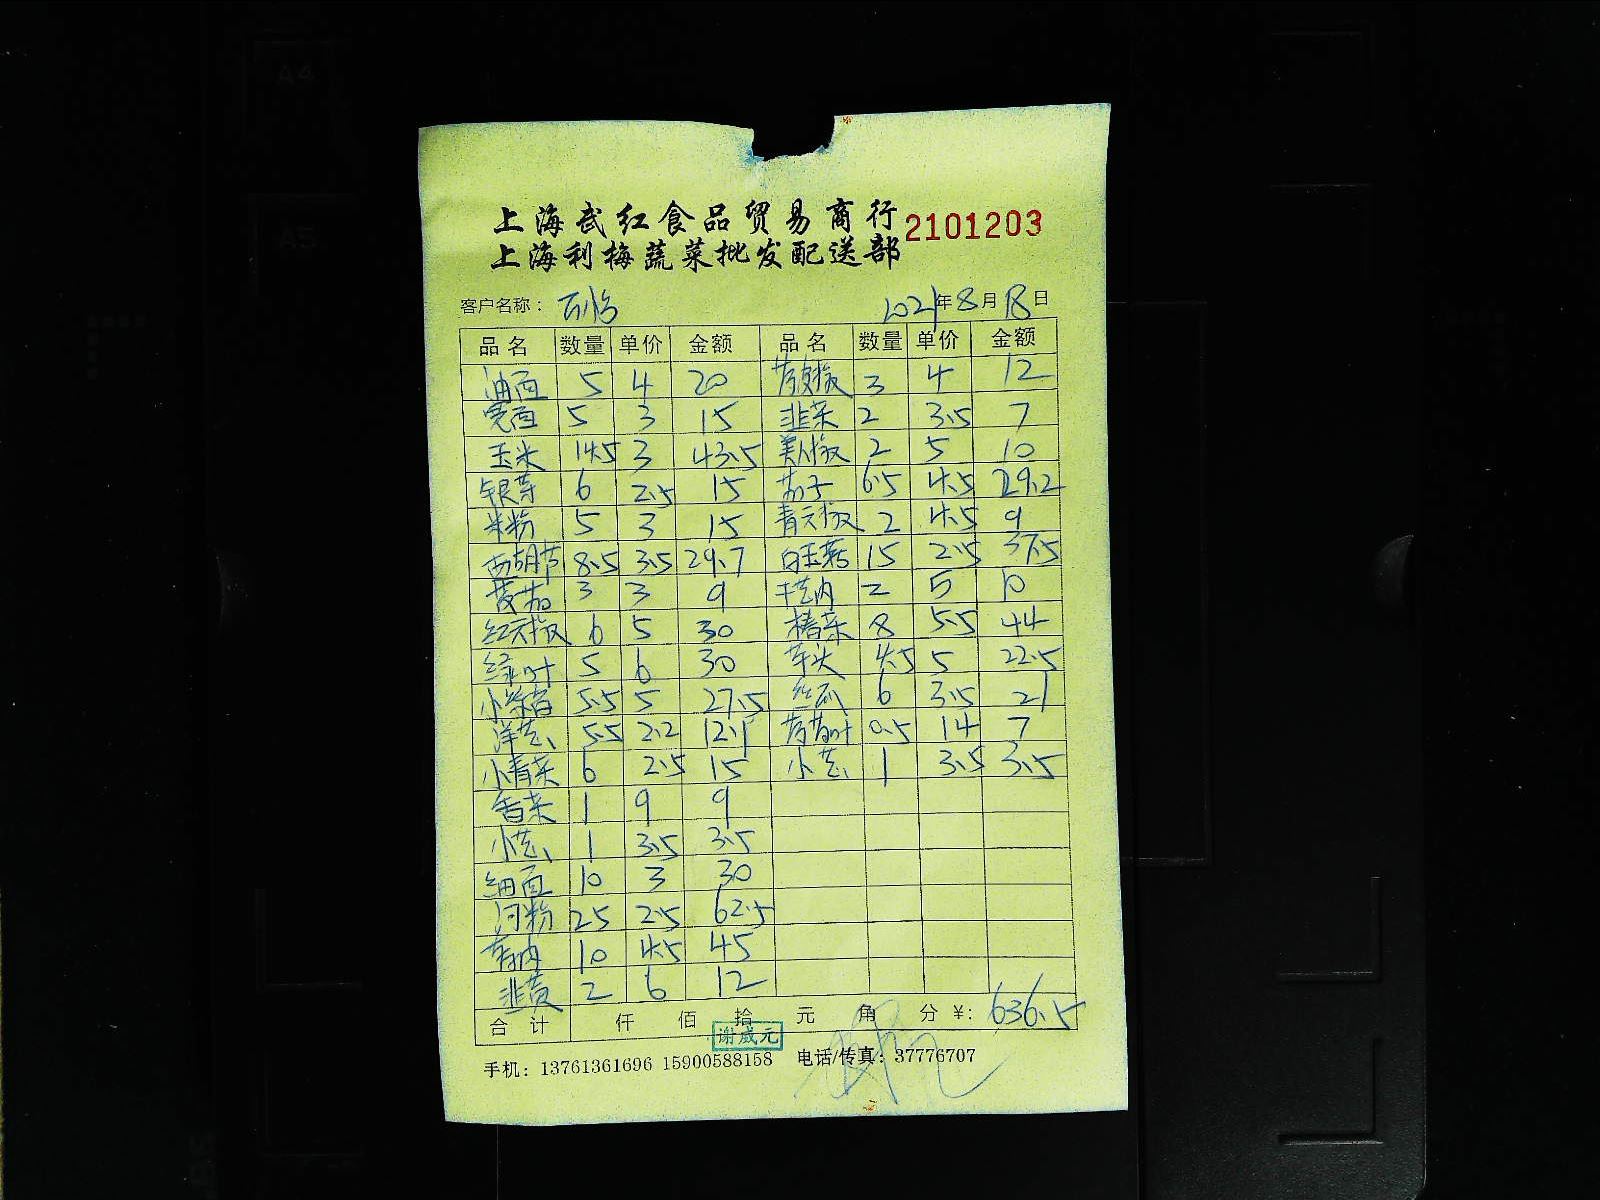 上海武红食品贸易商行 2101203
上海利梅蔬菜批发配送部
客户名称： 2021年8月18日
品名 数量 单价 金额 品名 数量 单价 金额
油面 5 4 20 3 4 12
宽面 5 3 15 韭菜 2 3.5 7
玉米 14.5 3 43.5 美人椒 2 5 10
银芽 6 2.5 15 茄子 6.5 4.5 29.2
米粉 5 3 15 青尖椒 2 4.5 9
西葫芦 8.5 3.5 29.7 白玉菇 15 2.5 37.5
3 3 9 2 5 10
红尖椒 6 5 30 8 5.5 44
绿叶 5 6 30 芋头 4.5 5 22.5
5.5 5 27.5 丝瓜 6 3.5 21
洋葱 5.5 2.2 12.1 0.5 14 7
小青菜 6 2.5 15 小葱 1 3.5 3.5
香菜 1 9 9
小葱 1 3.5 3.5
细面 10 3 30
河粉 25 2.5 62.5
10 4.5 45
韭黄 2 6 12
合计 仟 佰 拾 元 角 分 ¥: 636.5
谢威元
手机：13761361696 15900588158 电话/传真：37776707
A4
A5